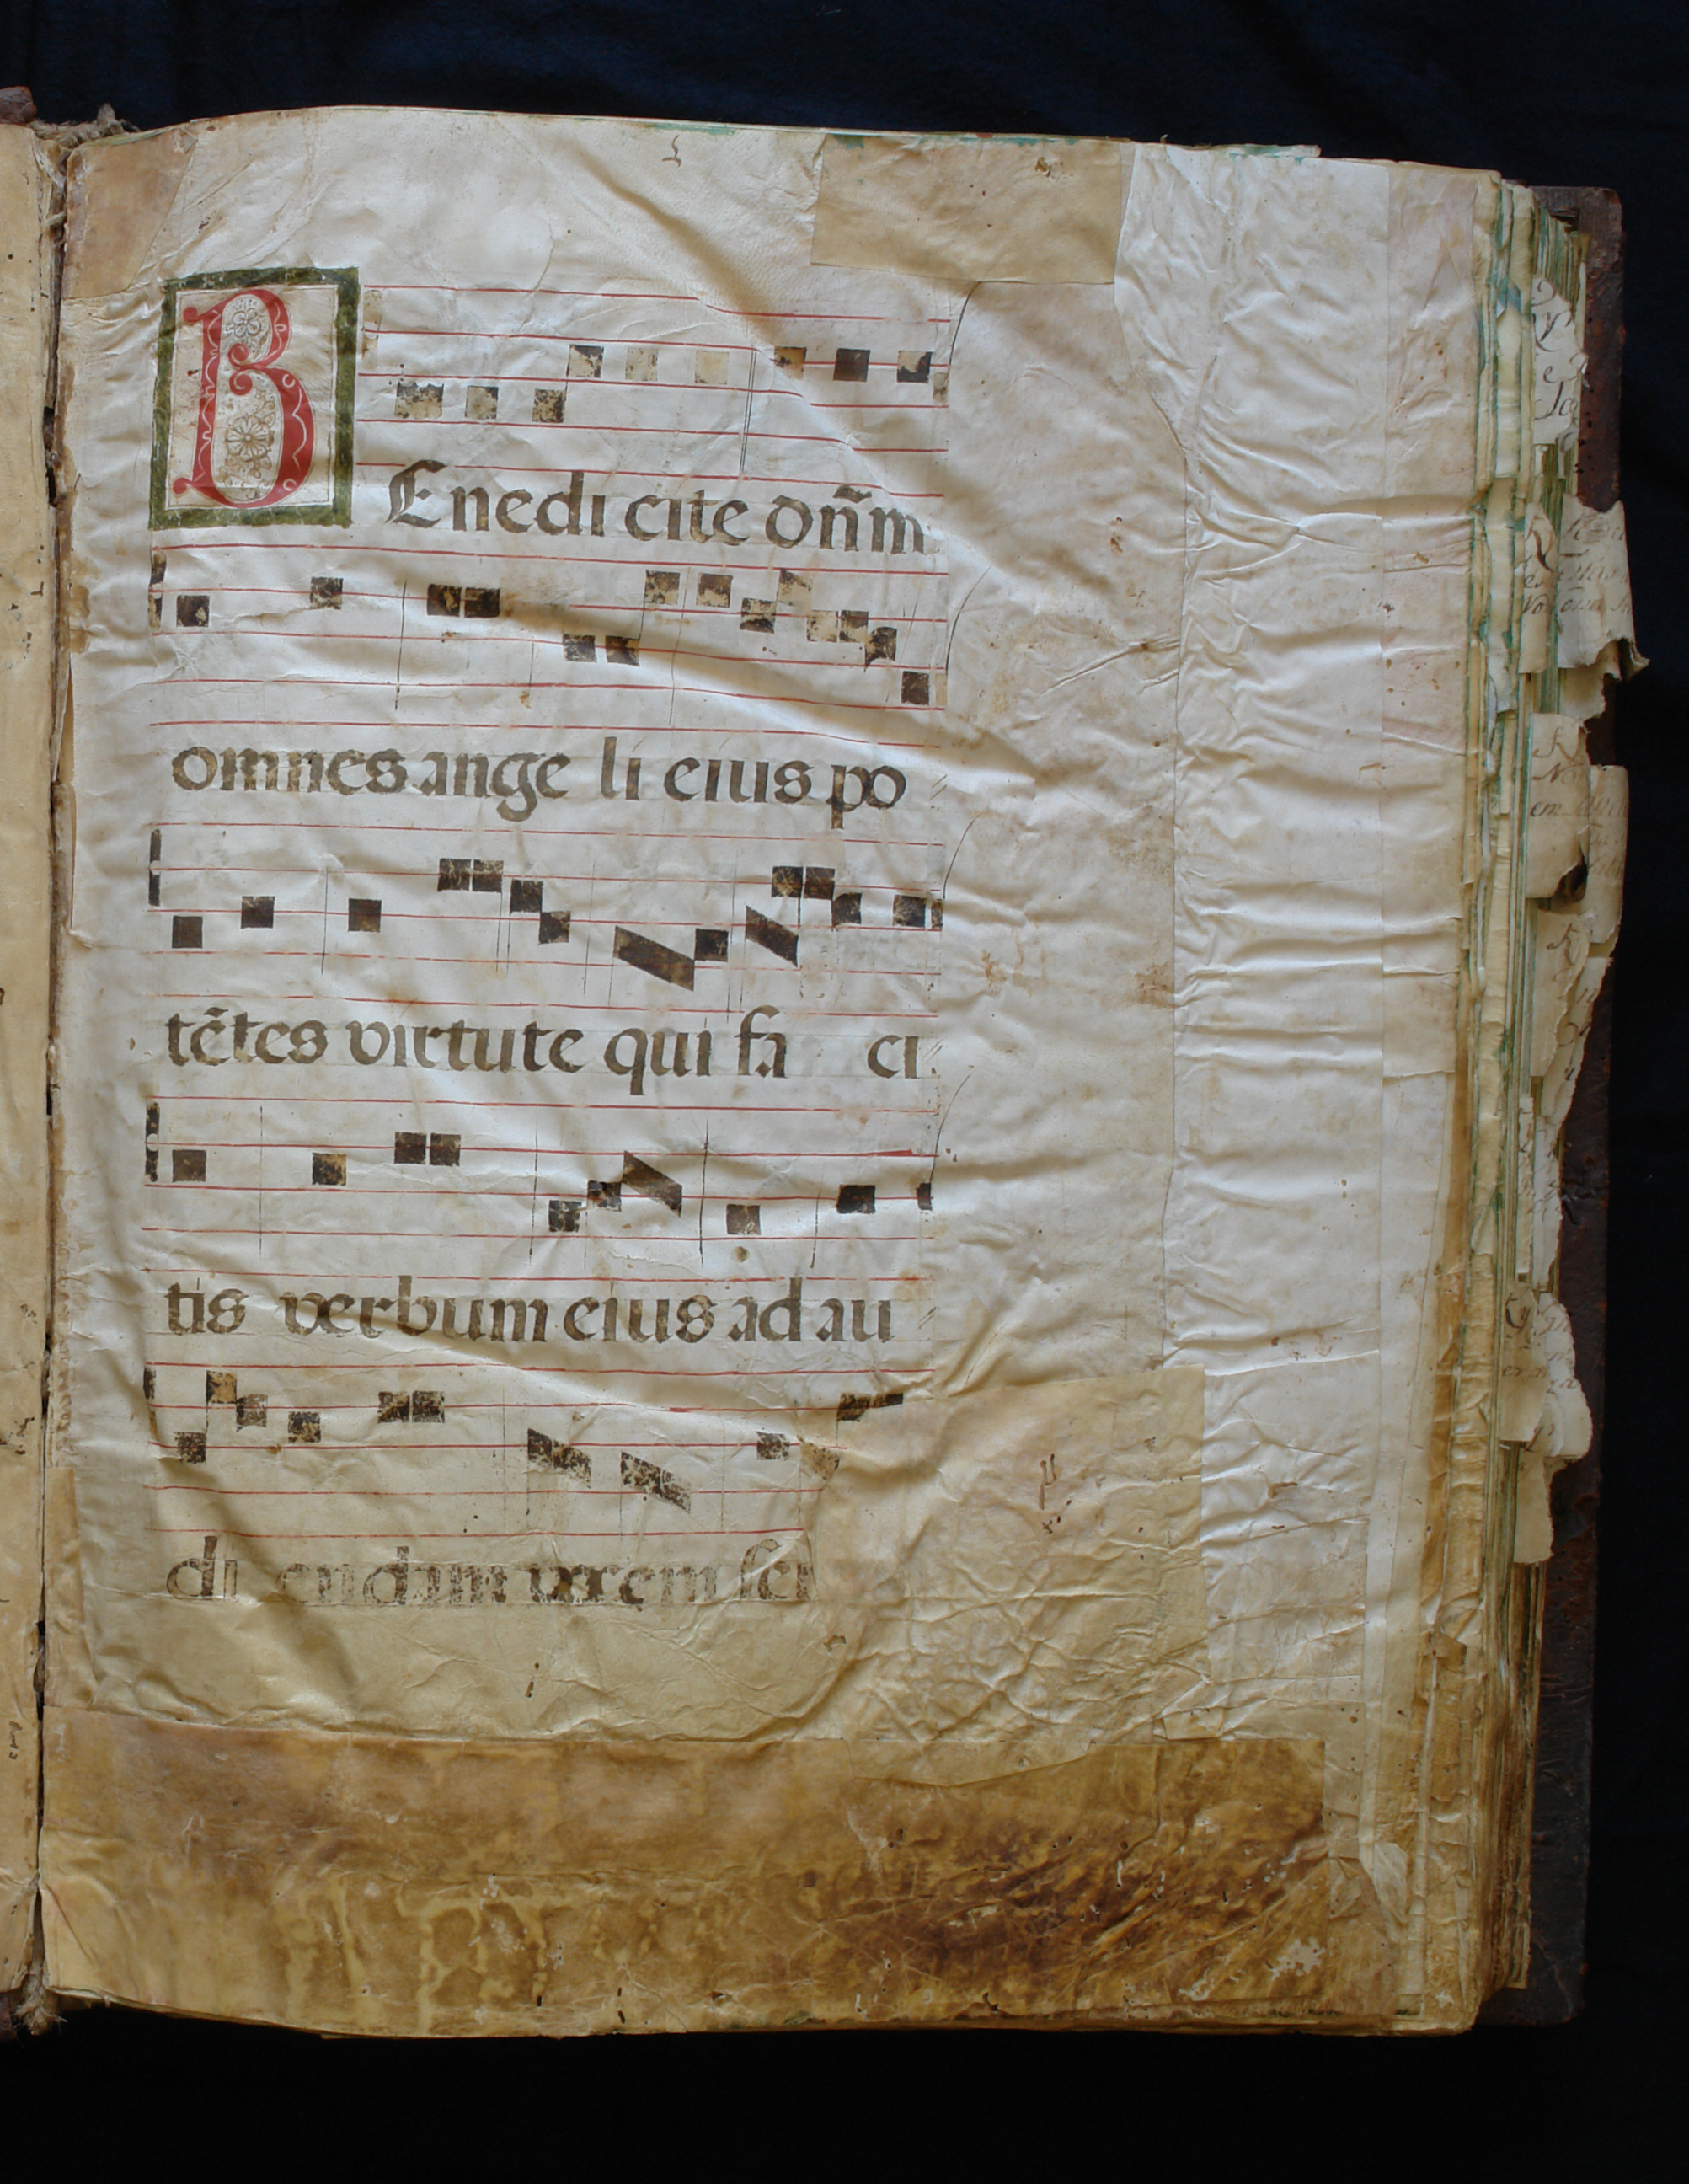 BEnedi cite dñm
omnes ange li eius po
tẽtes virtute qui fa ci
tis verbum eius ad au
di endam vocem ser